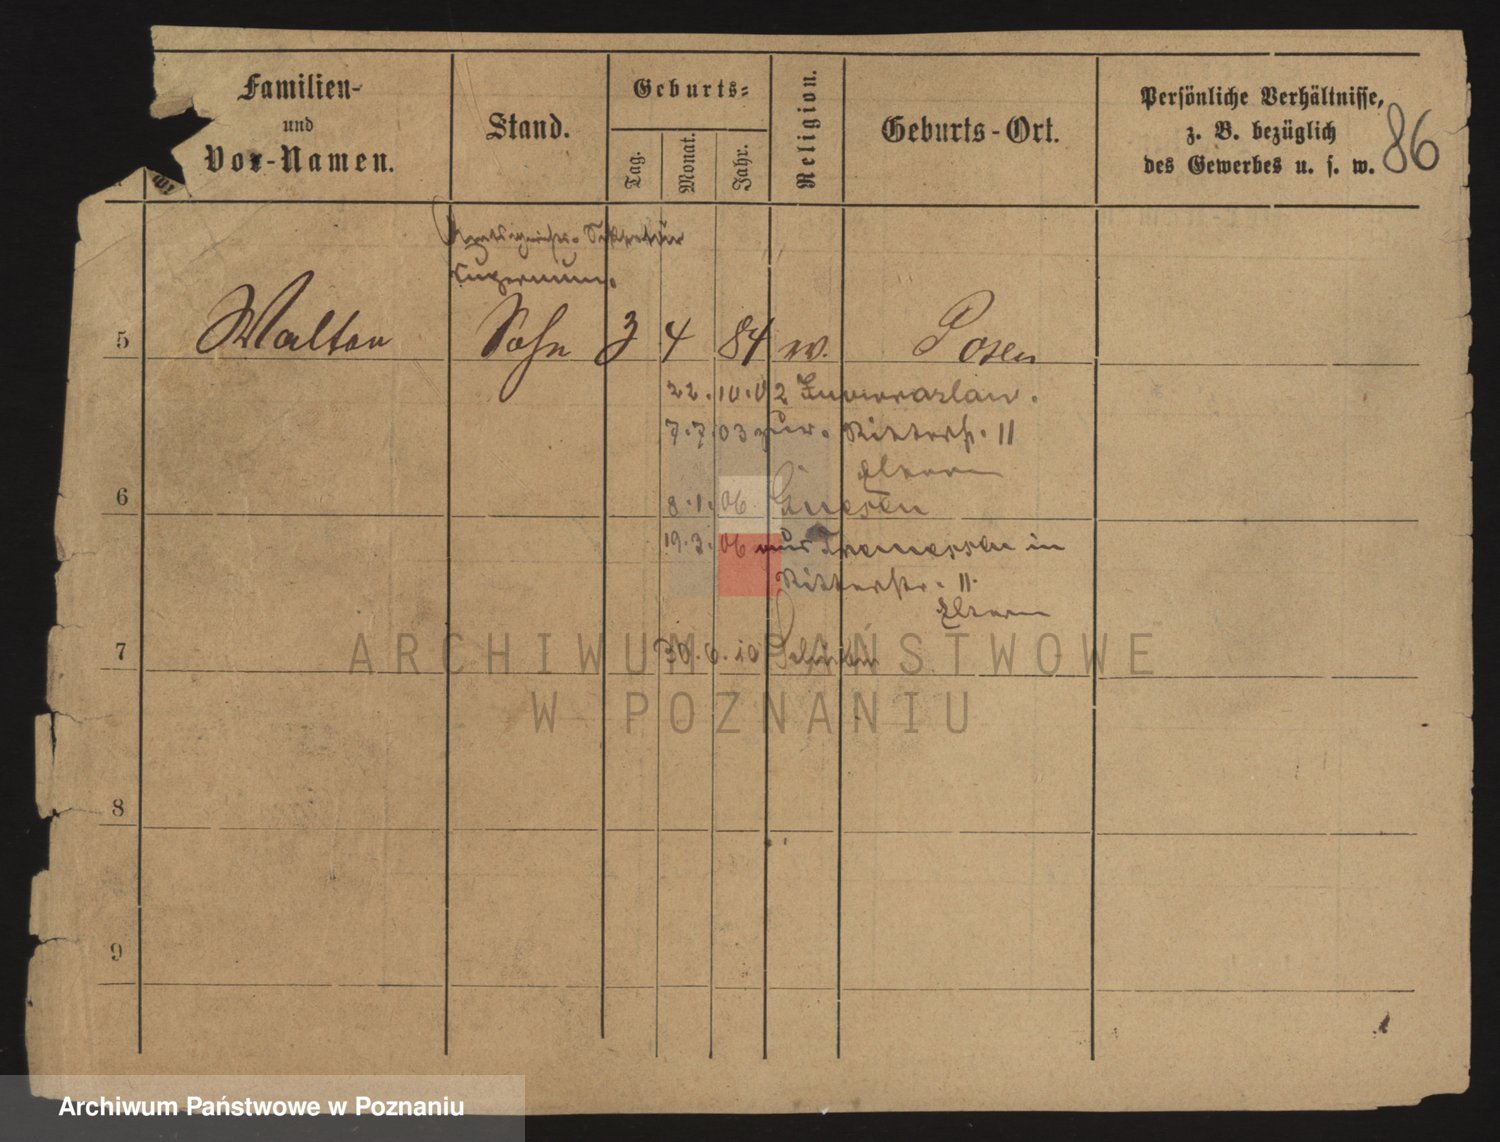 Familien-
und
Vor-Namen.
Stand.
Geburts-
Tag.
Monat.
Jahr.
Religion.
Geburts-Ort.
Persönliche Verhältnisse,
z. B. bezüglich
des Gewerbes u. s. w.
86
5 Walter Sohn 3 4 84 w. Posen
22.10.02 Inowrazlaw.
7.7.03 zur. Ritterstr. 11
Eltern
6
8.1.06 Gnesen
19.3.06 aus Tremessen in
Ritterstr. 11.
Eltern
7
30.6.10
8
9
ARCHIWUM PAŃSTWOWE
W POZNANIU
Archiwum Państwowe w Poznaniu